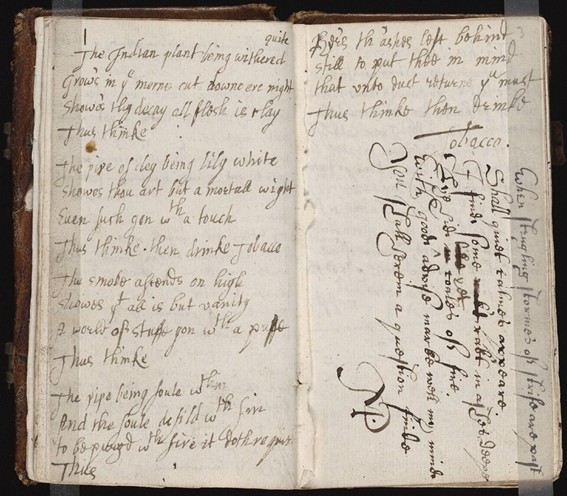 1
quite
The Indian plant being withered
Grow's in ye morne cut downe ere night
Shows thy decay all flesh is clay
Thus thinke
The pipe of cley being lily white
Showes thou art but a mortall wight
Even such gon wth a touch
Thus thinke then drinke Tobacco
The smoke assends on high
Showes yt all is but vanity
A world of stuffe gon wth a puffe
Thus thinke
The pipe being foule wthin
And the soule defil'd wth sin
to be purg'd wth fire it doth requir
Thus
3
th'ashes left behind
Still to put thee in mind
that unto dust returne yu must
Thus thinke then drinke
Tobacco.
When stormes of are past
Shall quiet calmes appeare
I find some in
of fire
with good advise marke well my minde
You shall a question finde